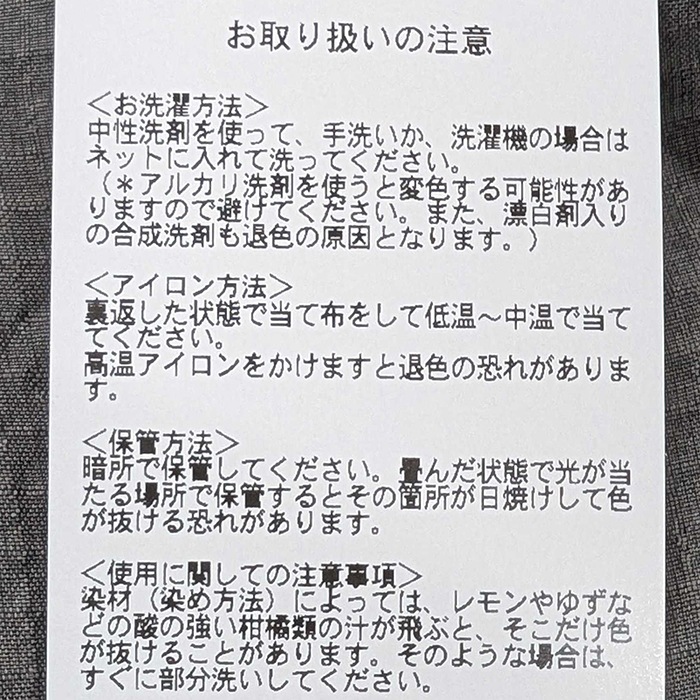 お取り扱いの注意
＜お洗濯方法＞
中性洗剤を使って、手洗いか、洗濯機の場合は
ネットに入れて洗ってください。
（＊アルカリ洗剤を使うと変色する可能性があ
りますので避けてください。また、漂白剤入り
の合成洗剤も退色の原因となります。）
＜アイロン方法＞
裏返した状態で当て布をして低温～中温で当て
てください。
高温アイロンをかけますと退色の恐れがありま
す。
＜保管方法＞
暗所で保管してください。畳んだ状態で光が当
たる場所で保管するとその箇所が日焼けして色
が抜ける恐れがあります。
＜使用に関しての注意事項＞
染材（染め方法）によっては、レモンやゆずな
どの酸の強い柑橘類の汁が飛ぶと、そこだけ色
が抜けることがあります。そのような場合は、
すぐに部分洗いしてください。